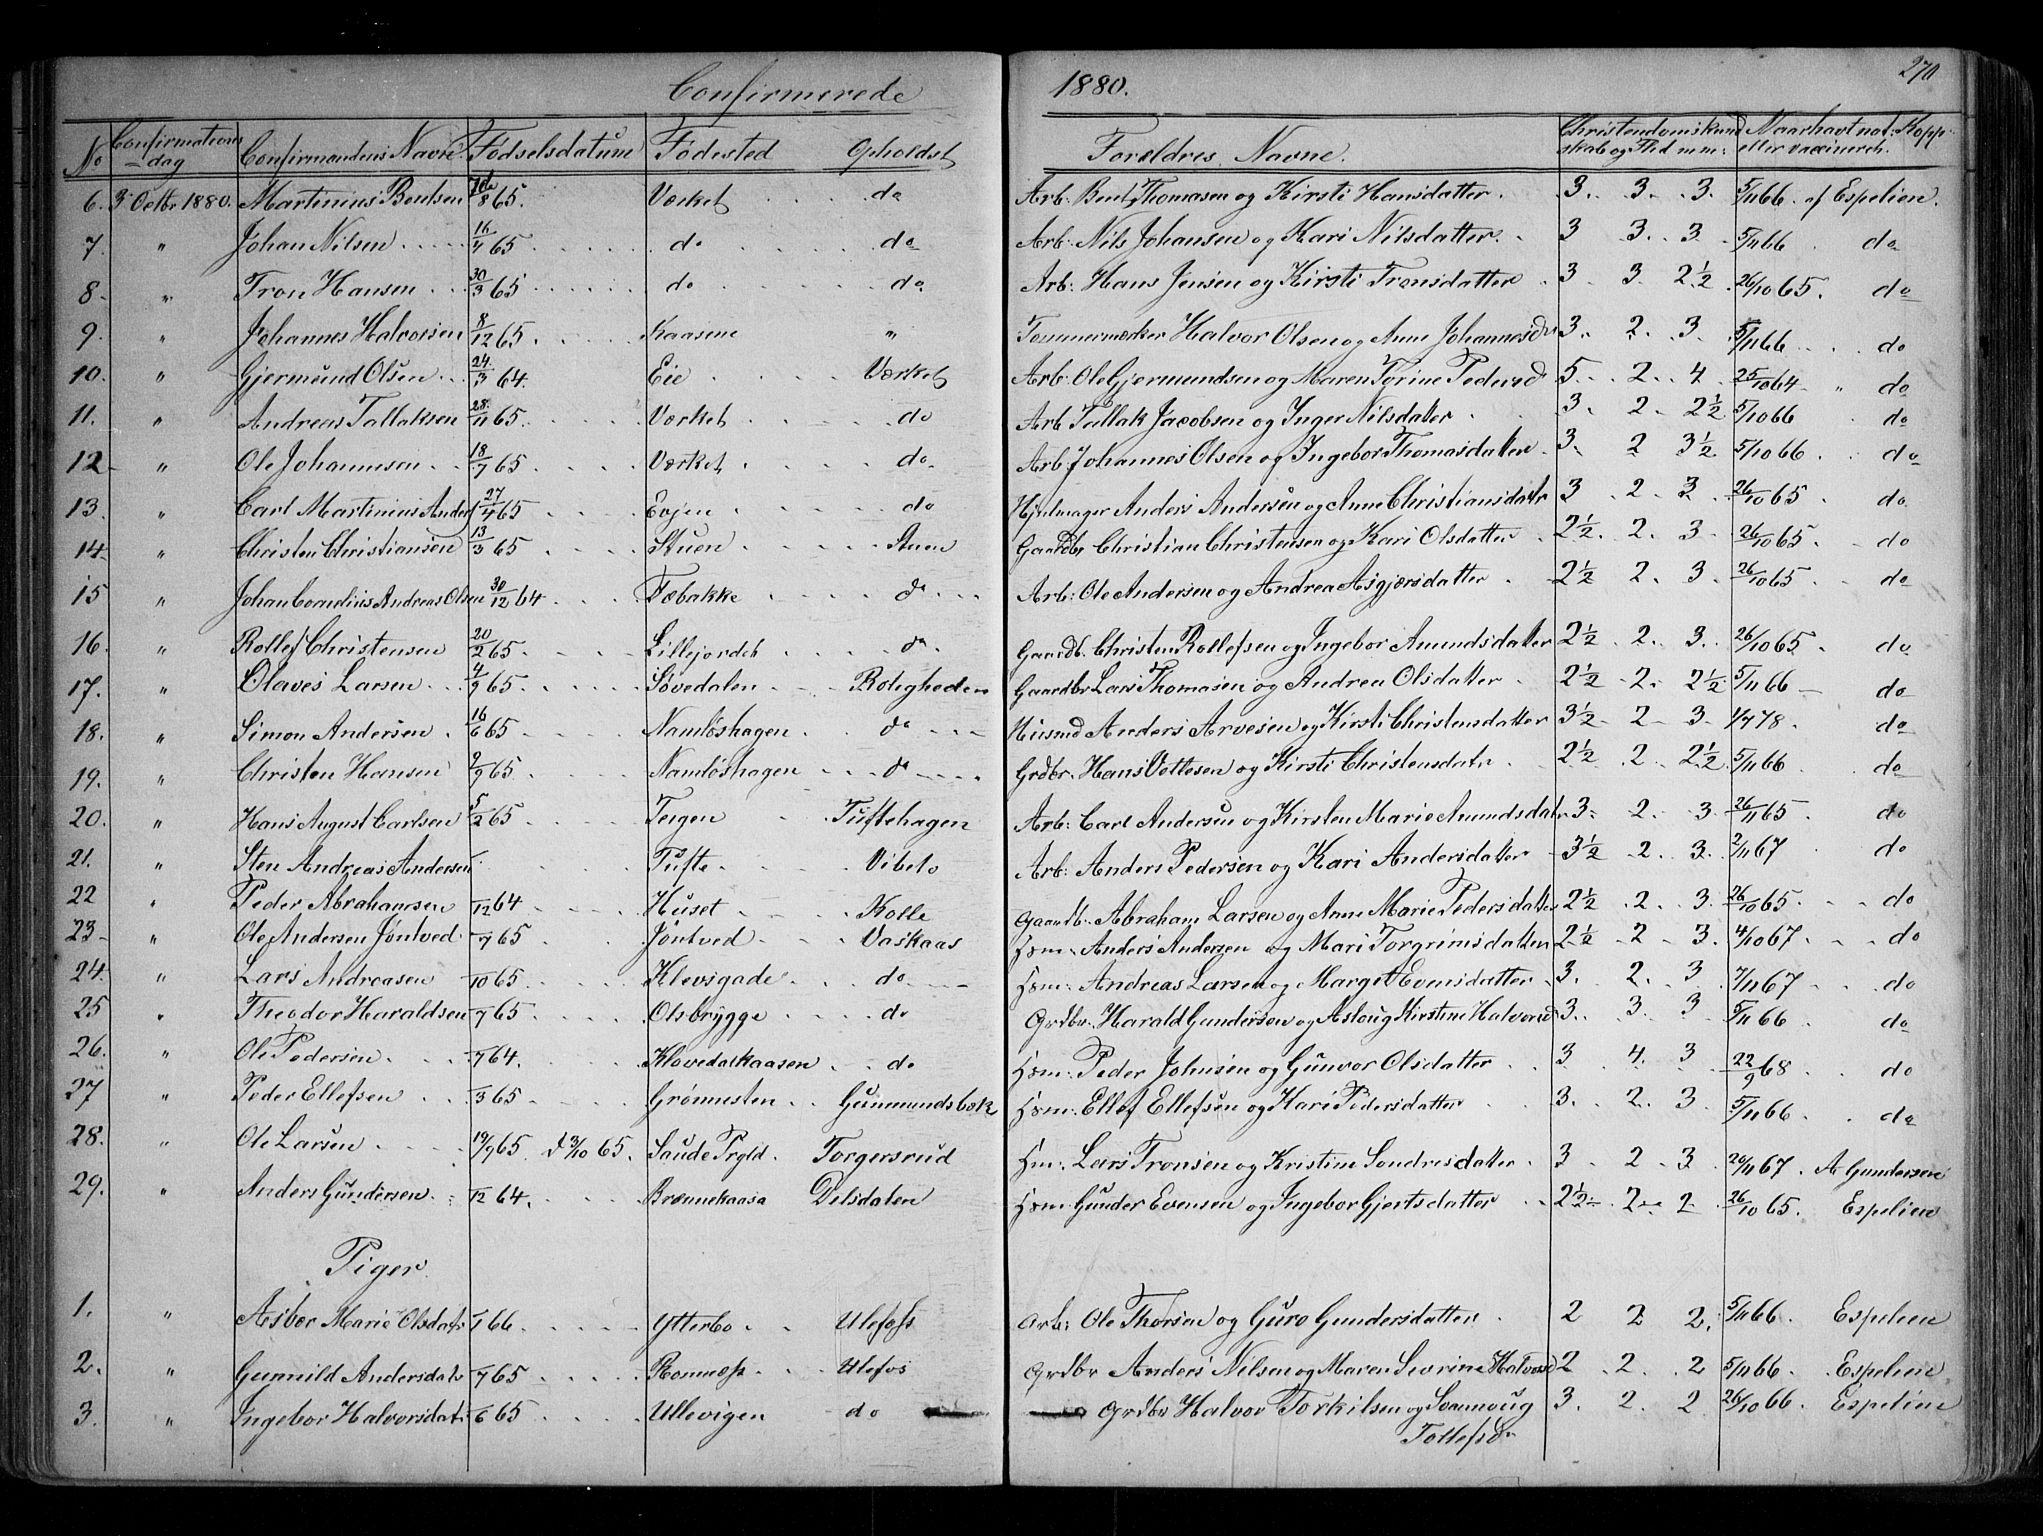 Confirmerede 1880. 270
No Confirmations-dag Confirmandens Navn Födselsdatum Födested Opholdst. Forældres Navne. Christendomskundskab og Flid m.m. Naar havt nat. Kopper eller vaccineret.
6. 3 Octbr 1880. Martinius Bentsen 8 65. Værket do Arb: Bent Thomasen og Kirsti Hansdatter. 3. 3. 3. 5/11 66. af Espelien.
7. " Johan Nilsen 16/4 65 do do Arb: Nils Johansen og Kari Nilsdatter. 3 3. 3 5/11 66 do
8. " Tron Hansen 30/3 65 do do Arb: Hans Jensen og Kirsti Tronsdatter 3. 3 2½ 26/10 65. do
9. " Johannes Halvorsen 8/12 65 Kaasene " Tømmermærker Halvor Olsen og Anne Johannesd 3. 2. 3. 5/11 66 do
10. " Gjermund Olsen 24/3 64. Eie Værket Arb: Ole Gjermundsen og Maren Torine Pedersd 5. 2. 4 25/10 64 " do
11. " Andreas Tallaksen 28/11 65 Værket do Arb Tallak Jacobsen og Inger Nilsdatter 3. 2. 2½ 5/10 66 do
12 " Ole Johannesen 18/7 65 Værket do Arb: Johannes Olsen og Ingebor Thomasdatter 3. 2 3½ 5/10 66 do
13. " Carl Martinius Anders 27/4 65 Evjen do Hjulmager Anders Andersen og Anne Christiansdatr 3 2. 3. 26/10 65 do
14. " Christen Christiansen 13/3 65 Stuen Stuen Gaardbr Christian Christensen og Kari Olsdatter 2½. 2. 3. 26/10 65. do
15 " Johan Cornelius Andreas Olsen 30/12 64 Fæbakke do Arb: Ole Andersen og Andrea Asgjersdatter 2½ 2. 3. 26/10 65 do
16. " Rollef Christensen 20/2 65 Lillejordet do Gaardb. Christen Rollefsen og Ingebor Amundsdatter 2½ 2. 3. 26/10 65. do
17. " Olaves Larsen 4/9 65 Sövedalen Roligheden Gaardbr Lars Thomasen og Andrea Olsdatter 2½ 2. 2½. 5/11 66 do
18. " Simon Andersen 16/6 65 Namlöshagen do Husmd Anders Arvesen og Kirsti Christensdatter 3½ 2 3. 1/7 78. do
19. " Christen Hansen 2/9 65 Namlöshagen do Grdbr. Hans Vettesen og Kirsti Christensdatr 2½ 2 2½. 5/11 66 do
20. " Hans August Carlsen 5/2 65 Teigen Tuftehagen Arb: Carl Andersen og Kirsten Marie Amundsdatr 3. 2. 3. 26/11 65. do
21. " Sten Andreas Andersen Tufte Vibeto Arb: Anders Pedersen og Kari Andersdatter 3½ 2. 3. 2/11 67 do
22 " Peder Abrahamsen /12 64 Huset Kolle Gaardb: Abraham Larsen og Anne Marie Pedersdatter 2½ 2. 3. 26/10 65. do
23 " Ole Andersen Jöntved /7 65 Jöntved Vaskaas Hsm: Anders Andersen og Mari Torgrimsdatter 2½ 2 3. 4/10 67 do
24. " Lars Andreasen /10 65 Klevsgade do Hsm: Andreas Larsen og Marget Evensdatter 3. 2. 3 7/11 67 do
25 " Theodor Haraldsen /7 65 Olsbrygge do Grdbr: Harald Gundersen og Aslaug Kirstine Halvorsd 3. 3. 3 5/11 66 do
26. " Ole Pedersen /7 64. Klovedalskaasen do Hsm: Peder Johnsen og Gunvor Olsdatter 3 4. 3 22/9 68 do
27 " Peder Ellefsen /3 65 Grönnesten Gunmundsbæk Hsm: Ellef Ellefsen og Kari Pedersdatter 3. 2. 3 5/11 66 do
28. " Ole Larsen 19/9 65 65. Saude Prgld. Torgersrud Hm: Lars Tronsen og Kristine Sondresdatter 3 2 3. 20/11 67 A Gundersen
29. " Anders Gundersen /12 64. Brennekaasa Delsdalen Hsm: Gunder Evensen og Ingebor Gjertsdatter 2½ 2 2 26/10 65. Espelien
Piger.
1. " Asbor Marie Olsdatr /1 66 Ytterbo Ulefos Arb: Ole Thorsen og Guro Gundersdatter 2 2 2. 5/11 66 Espelien
2. " Gunnild Andersdatr /7 65 Romnes Ulefos Grdbr Anders Nilsen og Maren Sevrine Halvorsd 2. 2. 2 5/11 66 Espelien
3. " Ingebor Halvorsdatr /6 65 Ullevigen do Grdbr Halvor Torkilsen og Sonnoug Tollefsd 3. 2. 2 26/10 66. Espelien